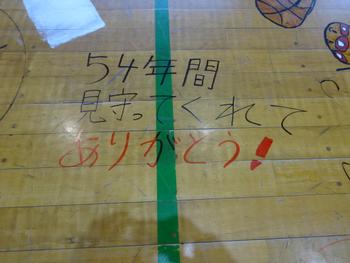 54年間
見守ってくれて
ありがとう!